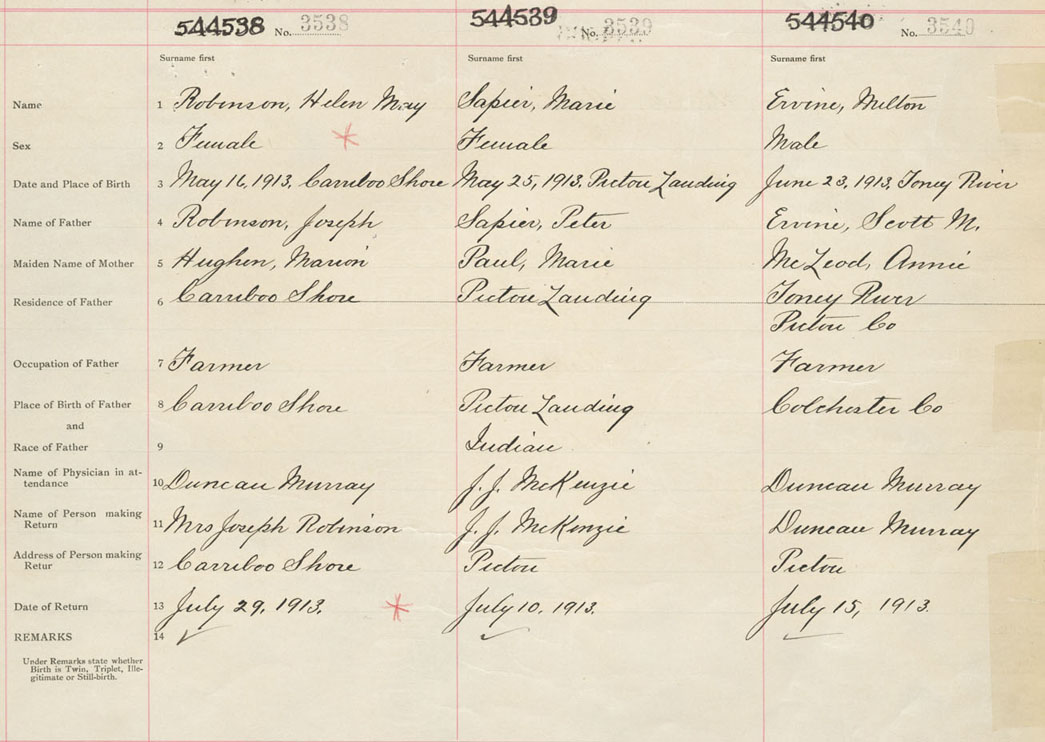 544538 No. 3538 544539 No. 3539 544540 No. 3540
Surname first Surname first Surname first
Name 1 Robinson, Helen May Sapier, Marie Ervine, Milton
Sex 2 Female Female Male
Date and Place of Birth 3 May 16, 1913, Carriboo Shore May 25, 1913. Pictou Landing June 23, 1913, Toney River
Name of Father 4 Robinson, Joseph Sapier, Peter Ervine, Scott M.
Maiden Name of Mother 5 Hughen, Marion Paul, Marie McLeod, Annie
Residence of Father 6 Carriboo Shore Pictou Landing Toney River
Pictou Co
Occupation of Father 7 Farmer Farmer Farmer
Place of Birth of Father 8 Carriboo Shore Pictou Landing Colchester Co
and
Race of Father 9 Indian
Name of Physician in at-
tendance 10 Duncan Murray J. J. McKenzie Duncan Murray
Name of Person making
Return 11 Mrs Joseph Robinson J. J. McKenzie Duncan Murray
Address of Person making
Retur 12 Carriboo Shore Pictou Pictou
Date of Return 13 July 29, 1913. July 10, 1913. July 15, 1913.
REMARKS 14
Under Remarks state whether
Birth is Twin, Triplet, Ille-
gitimate or Still-birth.